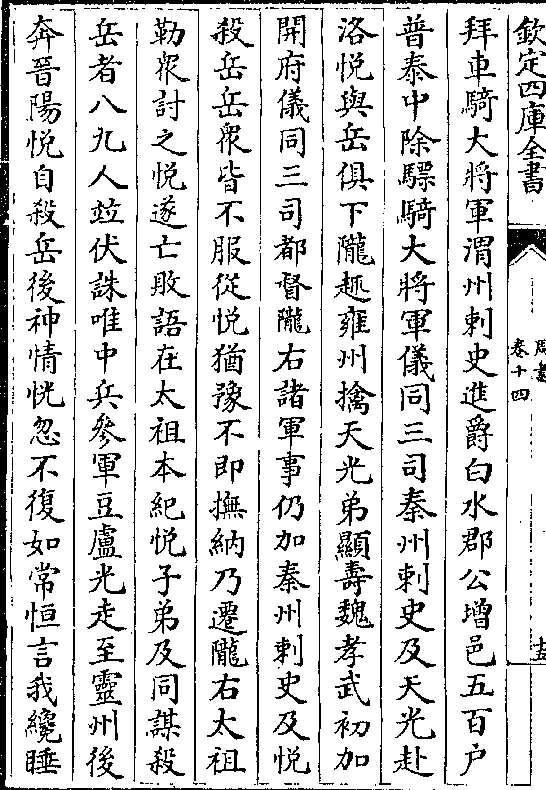 欽定四庫全書
周書
卷十四
十五
拜車騎大將軍渭州刺史進爵白水郡公增邑五百户
普泰中除驃騎大將軍儀同三司秦州刺史及天光赴
洛悦與岳俱下隴趣雍州擒天光弟顯壽魏孝武初加
開府儀同三司都督隴右諸軍事仍加秦州刺史及悦
殺岳岳衆皆不服從悦猶豫不即撫納乃遷隴右太祖
勒衆討之悦遂亡敗語在太祖本紀悦子弟及同謀殺
岳者八九人竝伏誅唯中兵參軍豆盧光走至靈州後
奔晉陽悦自殺岳後神情恍忽不復如常恒言我纔睡